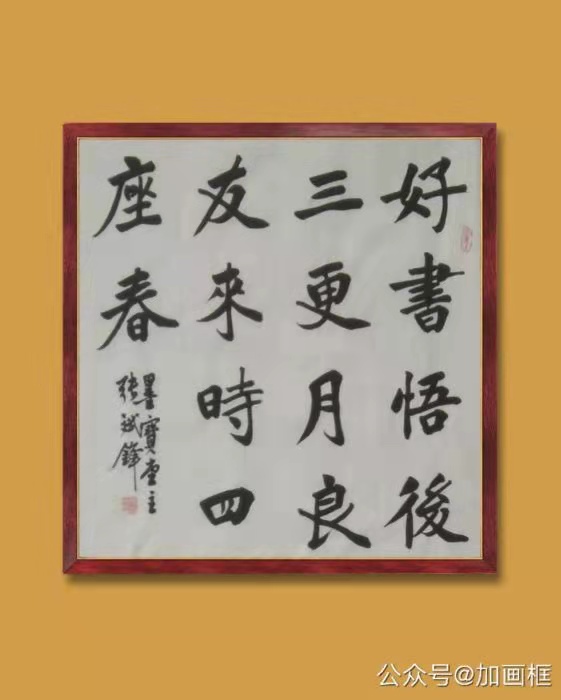 好書悟後
三更月良
友來時四
座春
墨寶堂主
張斌鋒
公众号@加画框